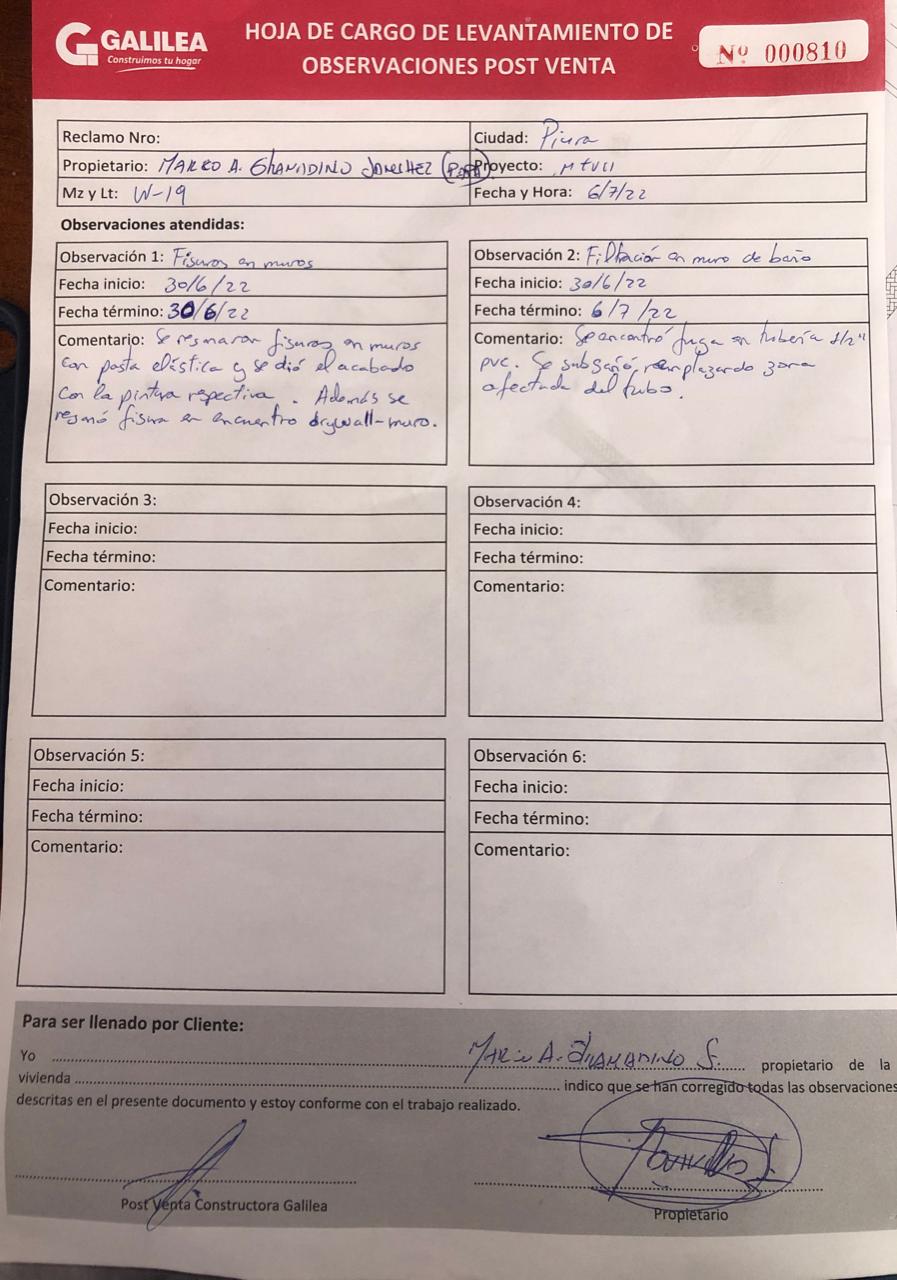 GALILEA
Construimos tu hogar
HOJA DE CARGO DE LEVANTAMIENTO DE
OBSERVACIONES POST VENTA
Nº 000810
Reclamo Nro:
Ciudad: Piura
Propietario: MARCO A. SANCHEZ
Proyecto:
Mz y Lt: W-19
Fecha y Hora: 6/7/22
Observaciones atendidas:
Observación 1: Fisuras en muros
Fecha inicio: 30/6/22
Fecha término: 30/6/22
Comentario: Se resanaron fisuras en muros
con pasta elástica y se dió el acabado
con la pintura respectiva. Además se
resanó fisura en encuentro drywall-muro.
Observación 2: Filtración en muro de baño
Fecha inicio: 30/6/22
Fecha término: 6/7/22
Comentario: Se encontró fuga en tubería 1/2"
pvc. Se subsanó, reemplazando zona
afectada del tubo.
Observación 3:
Fecha inicio:
Fecha término:
Comentario:
Observación 4:
Fecha inicio:
Fecha término:
Comentario:
Observación 5:
Fecha inicio:
Fecha término:
Comentario:
Observación 6:
Fecha inicio:
Fecha término:
Comentario:
Para ser llenado por Cliente:
Yo A. S. propietario de la
vivienda indico que se han corregido todas las observaciones
descritas en el presente documento y estoy conforme con el trabajo realizado.
Post Venta Constructora Galilea
Propietario